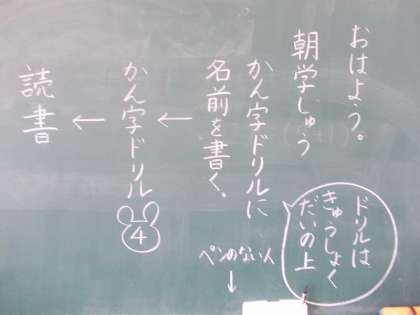 おはよう。
朝学しゅう
かん字ドリルに
名前を書く。
↓
かん字ドリル④
↓
読書
ドリルは
きゅうしょく
だいの上
ペンのない人
↓